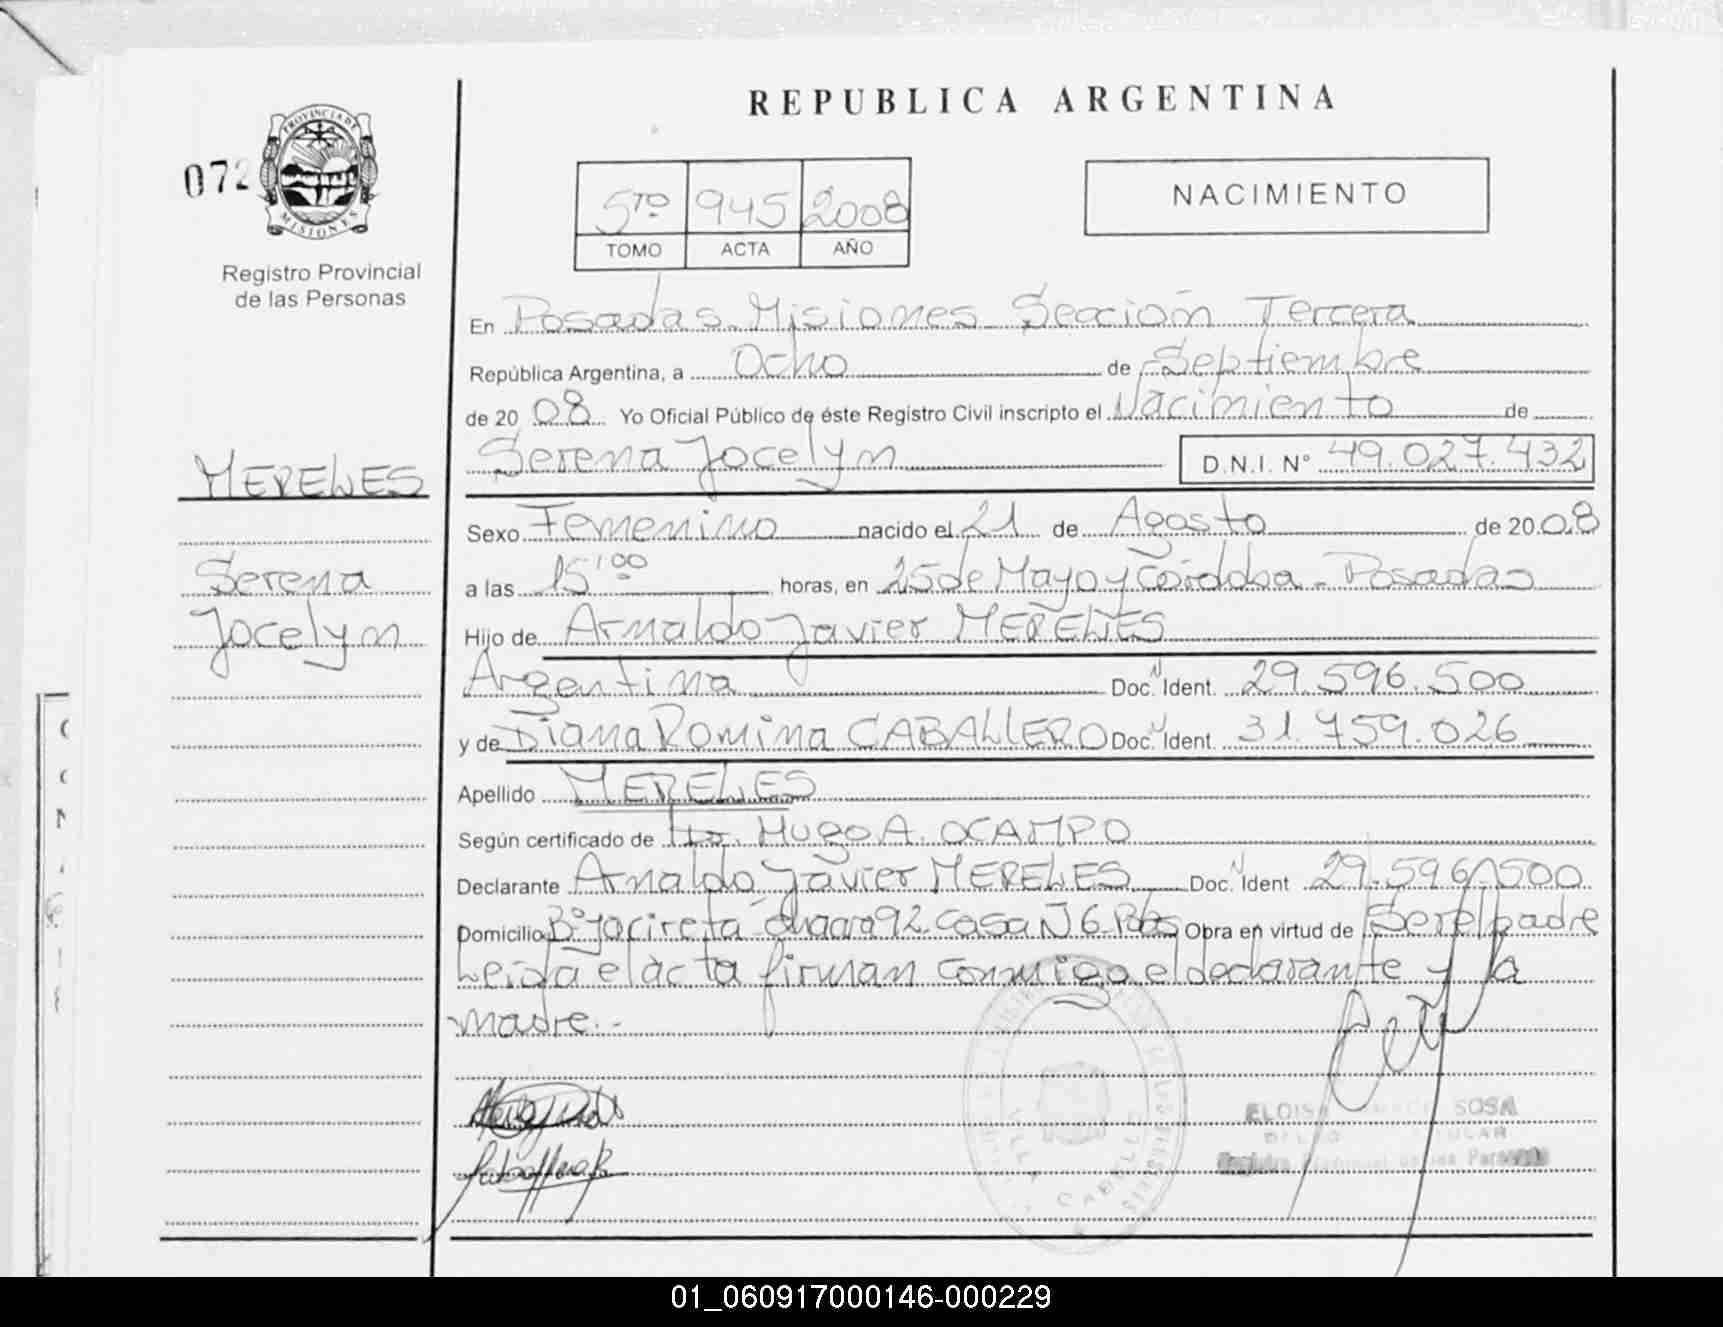 REPUBLICA ARGENTINA
072
PROVINCIA DE MISIONES
Registro Provincial
de las Personas
5TO 945 2008
TOMO ACTA AÑO
NACIMIENTO
En Posadas Misiones Sección Tercera
República Argentina, a Ocho de Septiembre
de 20 08 Yo Oficial Público de éste Registro Civil inscripto el Nacimiento de
Serena Jocelyn D.N.I. N° 49.027.432
MERELES
Serena
Jocelyn
Sexo Femenino nacido el 21 de Agosto de 20 08
a las 15'00 horas, en 25 de Mayo y Córdoba - Posadas
Hijo de Arnaldo Javier MERELES
Argentina Doc. Ident. 29.596.500
y de Diana Romina CABALLERO Doc. Ident. 31.759.026
Apellido MERELES
Según certificado de Hugo A. OCAMPO
Declarante Arnaldo Javier MERELES Doc. Ident 29.596.500
Domicilio B° Yacireta chacra 92 casa N 6 Pdas Obra en virtud de Ser el padre
Leida el acta firman conmigo el declarante y la
madre.-
ELOISA SOSA
01_060917000146-000229